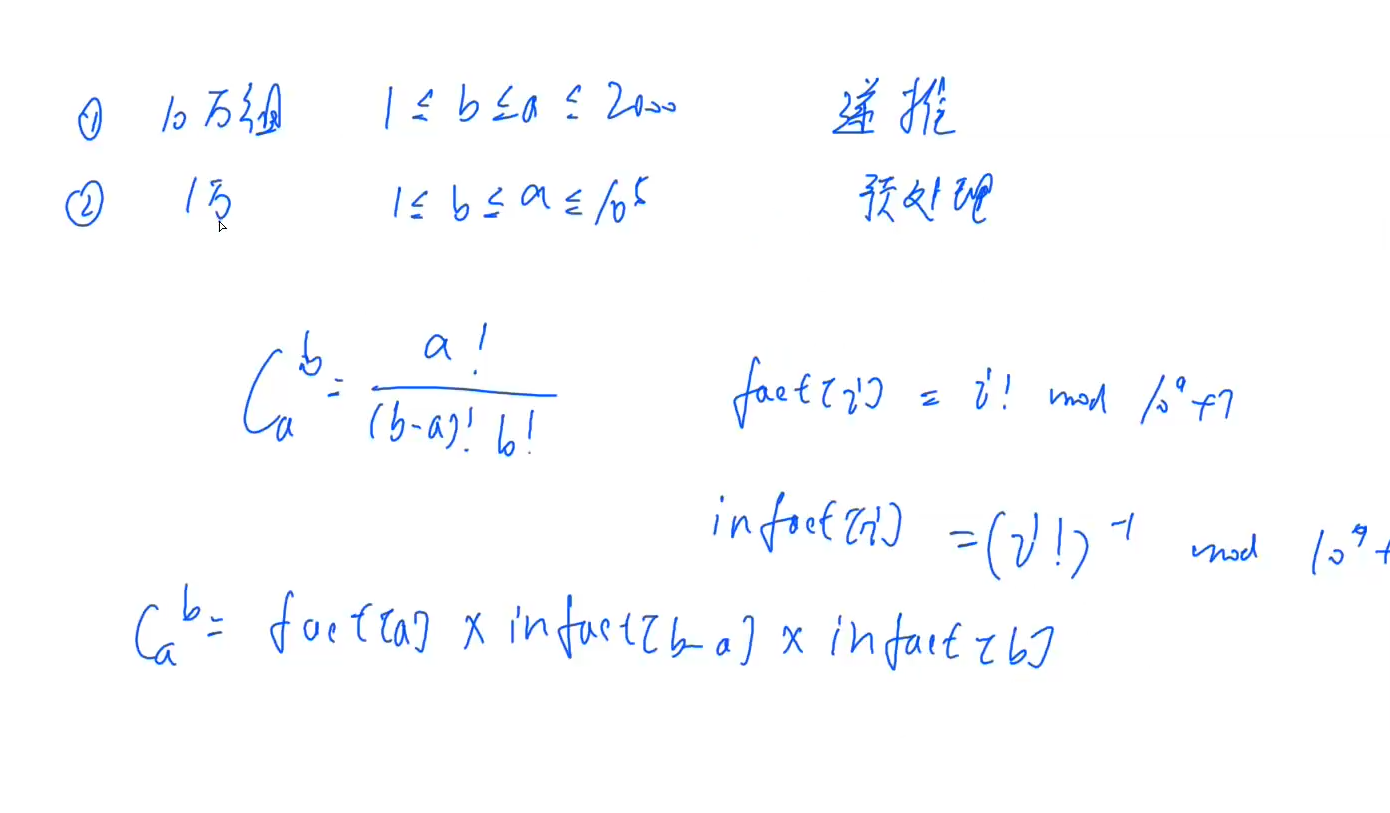 ① 10万组 1 ≤ b ≤ a ≤ 2000 递推
② 1万 1 ≤ b ≤ a ≤ 10^5 预处理
C_a^b = a! / (b-a)! b! fact[i] = i! mod 10^9+7
infact[i] = (i!)^-1 mod 10^9+
C_a^b = fact[a] × infact[b-a] × infact[b]